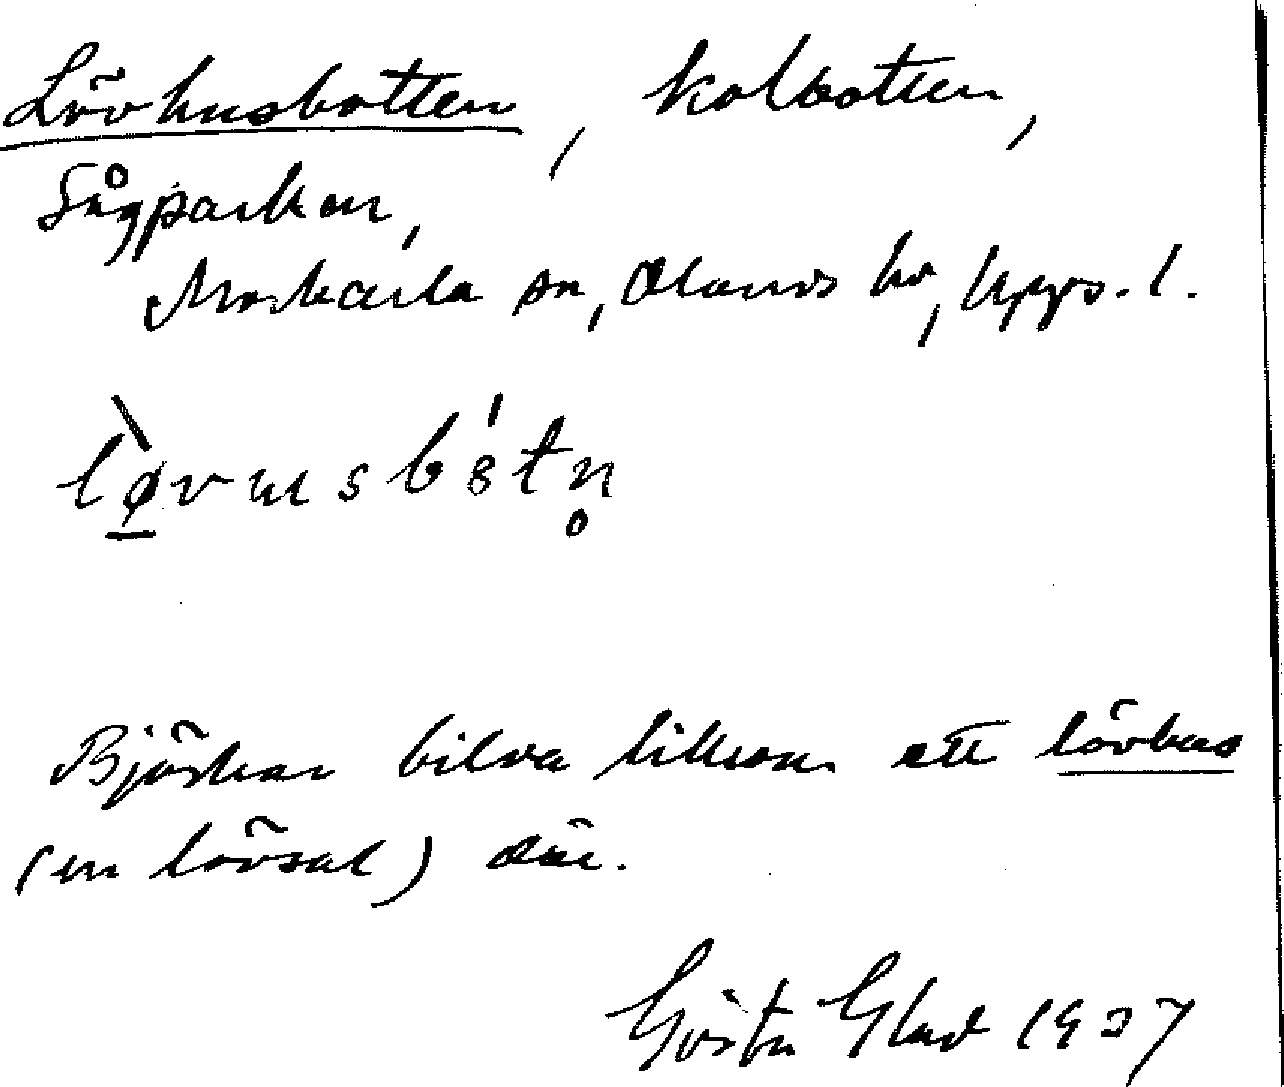 Lövhusbotten, kolbotten,
Sågparken,
Morkarla sn, Olands hd, Upps. l.
lø̀vɯsbȯ́tn̥
Björkar bilda liksom ett lövhus
(en lövsal) där.
Gösta Glad 1937